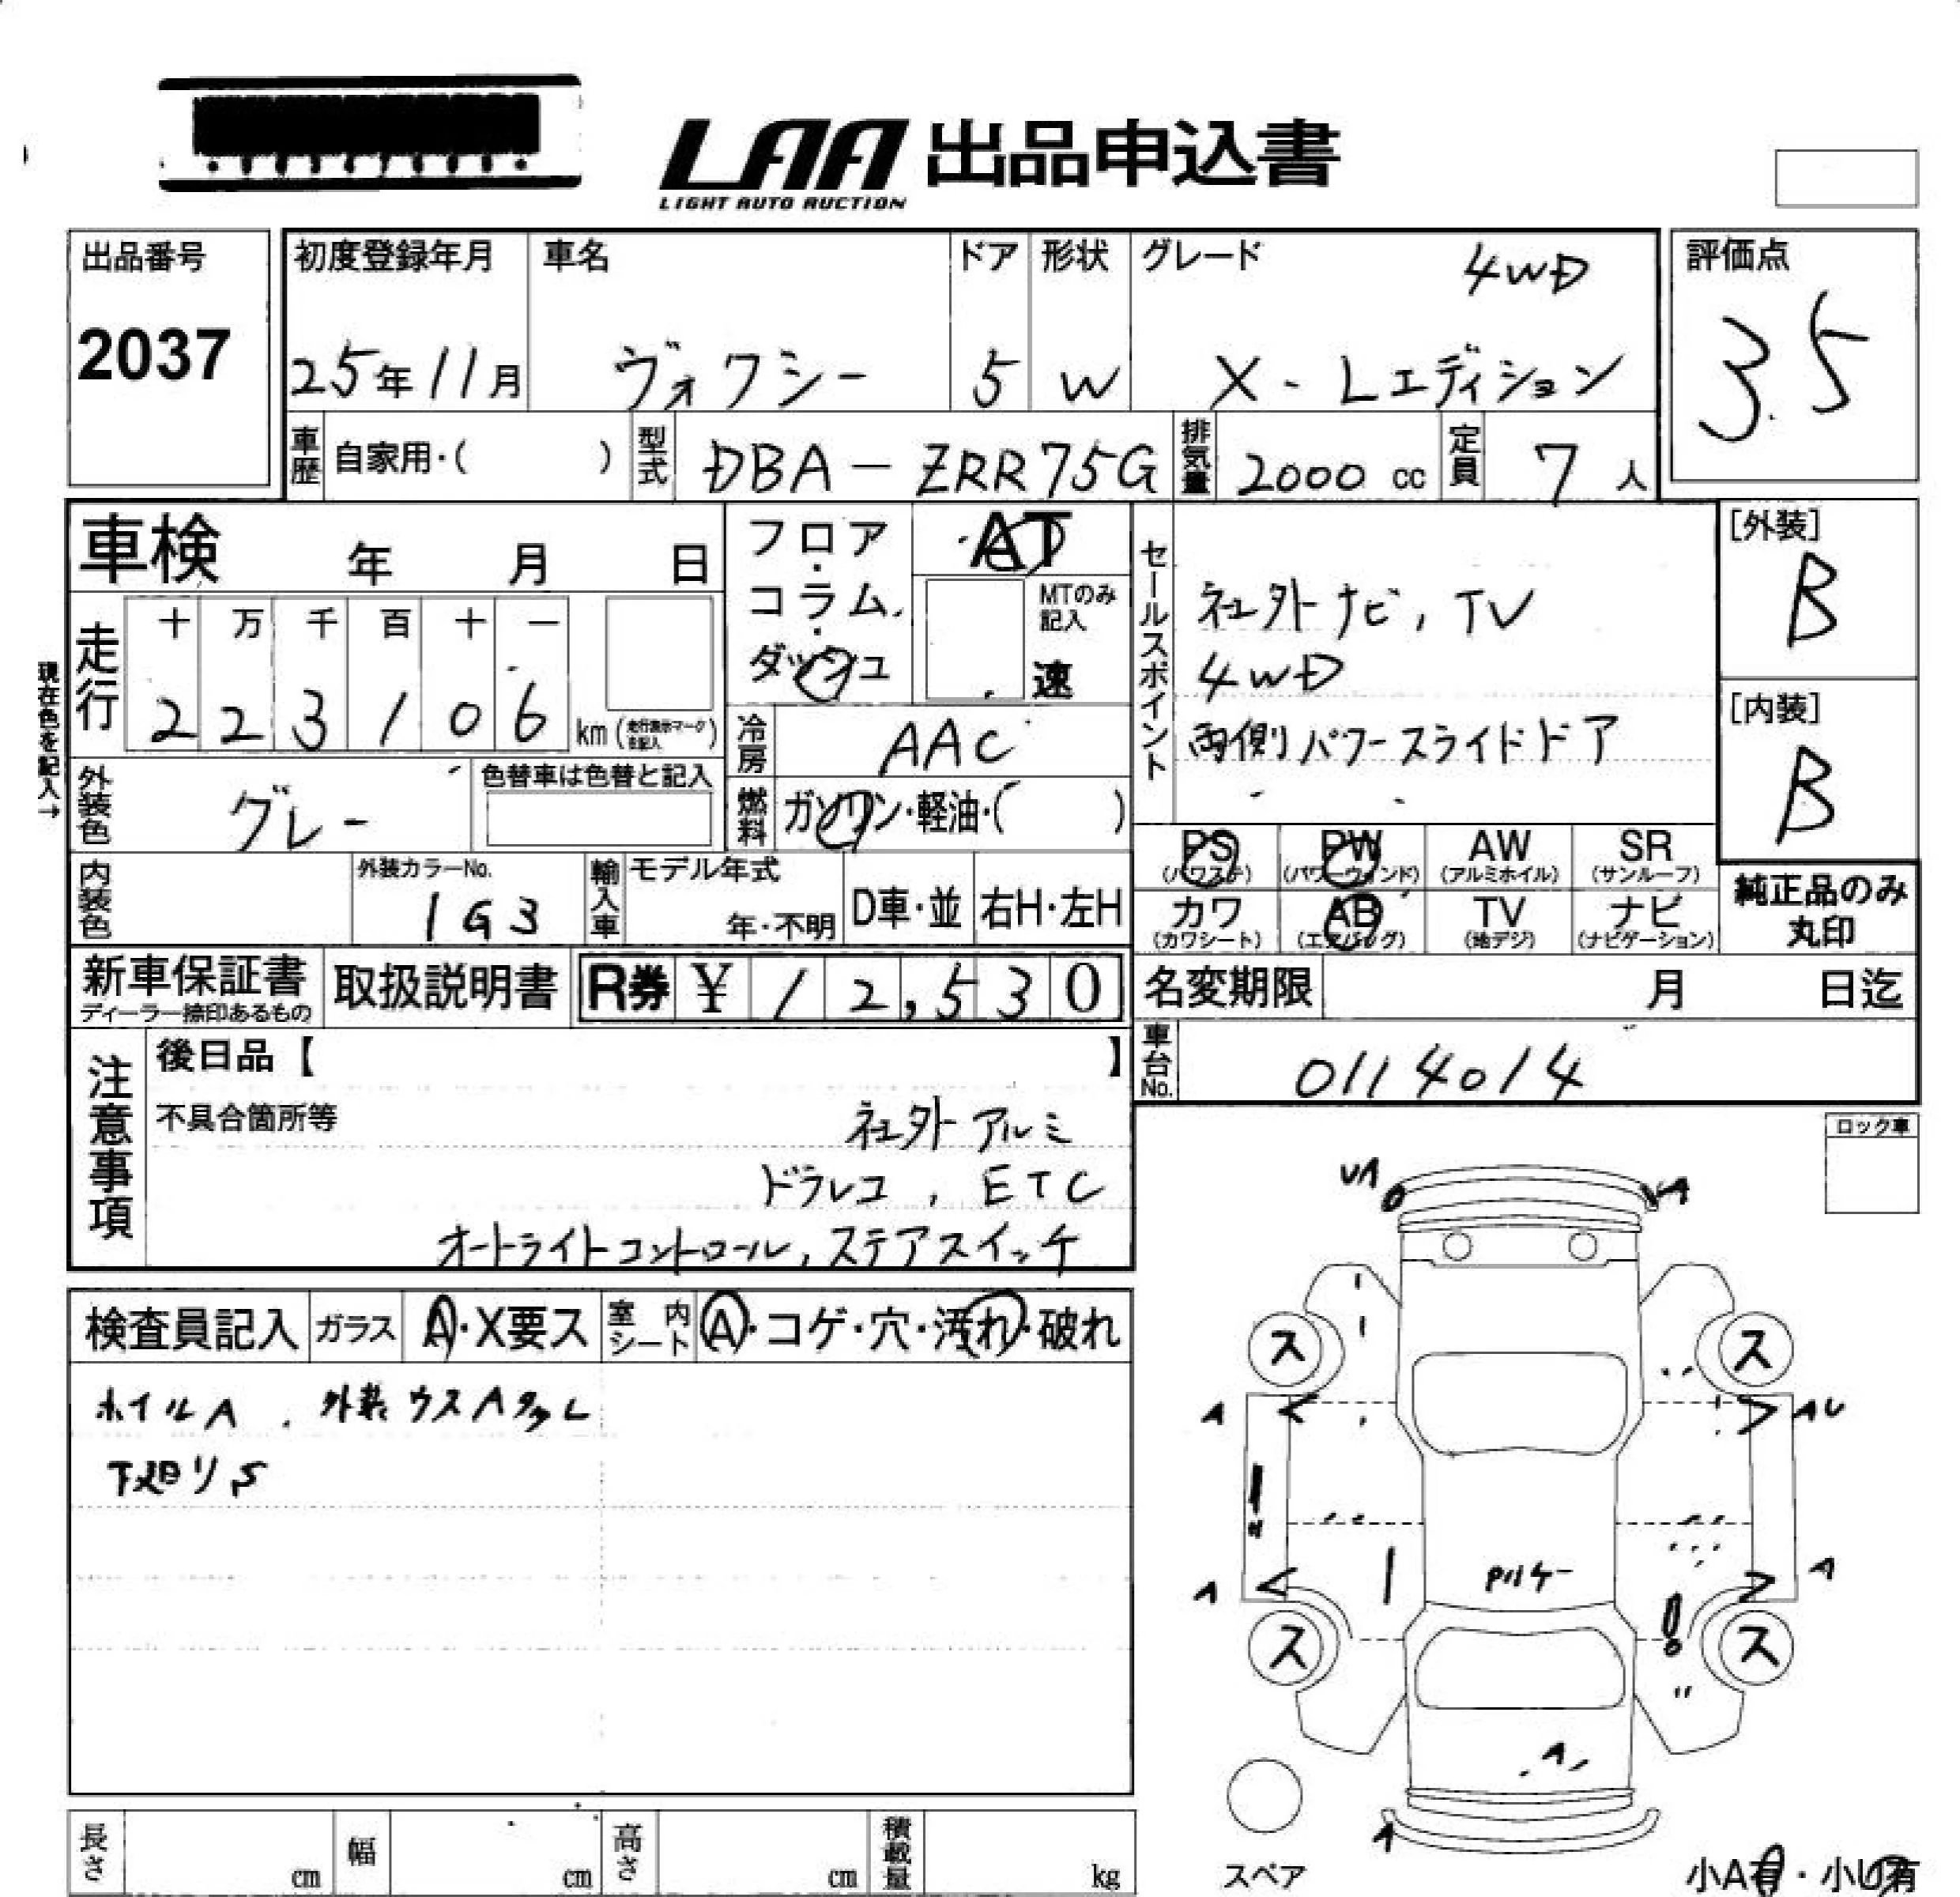 LAA 出品申込書
LIGHT AUTO AUCTION
出品番号
2037
初度登録年月
25年11月
車名
ヴォクシー
ドア
5
形状
W
グレード
4WD
X-Lエディション
評価点
3.5
車歴
自家用・( )
型式
DBA-ZRR75G
排気量
2000 cc
定員
7 人
車検 年 月 日
フロア・コラム・ダッシュ
AT
MTのみ記入
速
セールスポイント
社外ナビ, TV
4WD
両側パワースライドドア
[外装]
B
[内装]
B
現在色を記入→
走行
十 万 千 百 十 一
2 2 3 1 0 6 km
冷房
AAC
外装色
グレー
色替車は色替と記入
燃料
ガソリン・軽油・( )
PS
(パワステ)
PW
(パワーウィンド)
AW
(アルミホイル)
SR
(サンルーフ)
カワ
(カワシート)
AB
(エアバッグ)
TV
(地デジ)
ナビ
(ナビゲーション)
純正品のみ
丸印
内装色
外装カラーNo.
1G3
輸入車
モデル年式
年・不明
D車・並
右H・左H
新車保証書
ディーラー捺印あるもの
取扱説明書
R券 ¥ 12,530
名変期限 月 日迄
車台No.
0114014
注意事項
後日品【 】
不具合箇所等
社外アルミ
ドラレコ, ETC
オートライトコントロール, ステアスイッチ
ロック車
検査員記入
ガラス
A・X要ス
室内シート
A・コゲ・穴・汚れ・破れ
ホイルA . 外装ウスA多し
下廻りS
UA
A
ス
ス
A
AU
A
A
ス
ス
A
A
スペア
小A有・小U有
長さ cm
幅 cm
高さ cm
積載量 kg